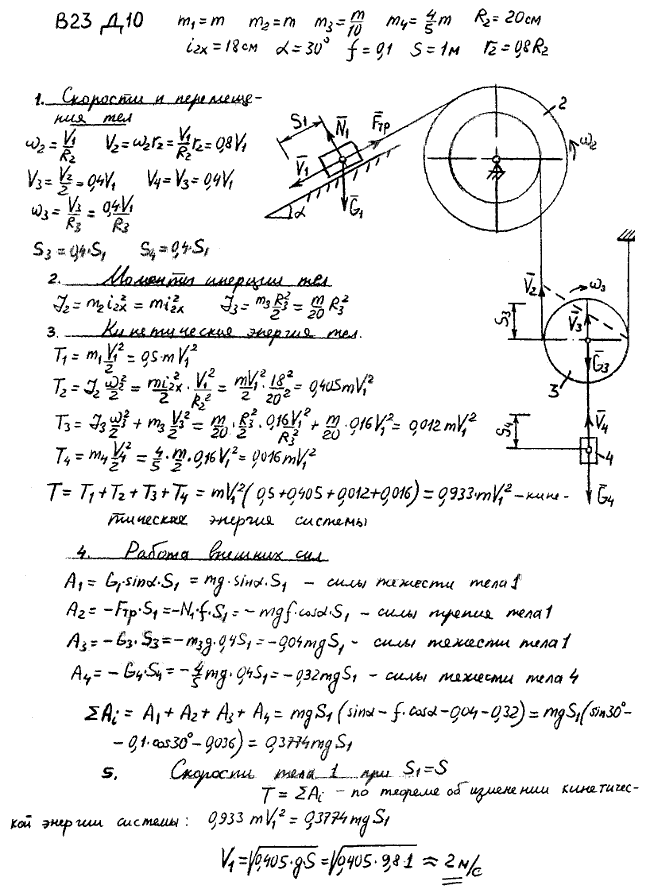 В23 Д10 m₁=m m₂=m m₃=m/10 m₄=4/5 m R₂=20см
i₂ₓ=18см α=30° f=0,1 S=1м r₂=0,8R₂
1. Скорости и перемеще-
ния тел
ω₂=V₁/R₂ V₂=ω₂r₂=V₁/R₂ r₂=0,8V₁
V₃=V₂/2=0,4V₁ V₄=V₃=0,4V₁
ω₃=V₃/R₃=0,4V₁/R₃
S₃=0,4·S₁ S₄=0,4·S₁
S₁ N̄₁ F̄тр V̄₁ Ḡ₁ α
2 ω₂
V̄₂ ω₃ S₃ V̄₃ Ḡ₃ 3
S₄ V̄₄ 4 Ḡ₄
2. Моменты инерции тел
J₂=m₂i₂ₓ²=mi₂ₓ² J₃=m₃R₃²/2=m/20 R₃²
3. Кинетическая энергия тел.
T₁=m₁V₁²/2=0,5·mV₁²
T₂=J₂ω₂²/2=mi₂ₓ²/2·V₁²/R₂²=mV₁²/2·18²/20²=0,405mV₁²
T₃=J₃ω₃²/2+m₃V₃²/2=m/20·R₃²/2·0,16V₁²/R₃²+m/20·0,16V₁²=0,012mV₁²
T₄=m₄V₄²/2=4/5·m/2·0,16V₁²=0,016mV₁²
T=T₁+T₂+T₃+T₄=mV₁²(0,5+0,405+0,012+0,016)=0,933·mV₁²-кине-
тическая энергия системы
4. Работа внешних сил
A₁=G₁·sinα·S₁=mg·sinα·S₁ - силы тяжести тела 1
A₂=-Fтр·S₁=-N₁·f·S₁=-mgf·cosα·S₁ - силы трения тела 1
A₃=-G₃·S₃=-m₃g·0,4S₁=-0,04mgS₁ - силы тяжести тела 1
A₄=-G₄·S₄=-4/5mg·0,4S₁=-0,32mgS₁ - силы тяжести тела 4
ΣAᵢ=A₁+A₂+A₃+A₄=mgS₁(sinα-f·cosα-0,04-0,32)=mgS₁(sin30°-
-0,1·cos30°-0,036)=0,3774mgS₁
5. Скорости тела 1 при S₁=S
T=ΣAᵢ - по теореме об изменении кинетичес-
кой энергии системы: 0,933mV₁²=0,3774mgS₁
V₁=√0,405·gS=√0,405·9,8·1≈2м/с